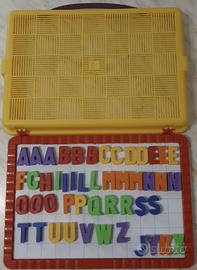 AAABBBCCDDEEE
FGHIIILLLMMMNNN
OOO PPQRRSS
TTUUVWZ
JYKX
subito